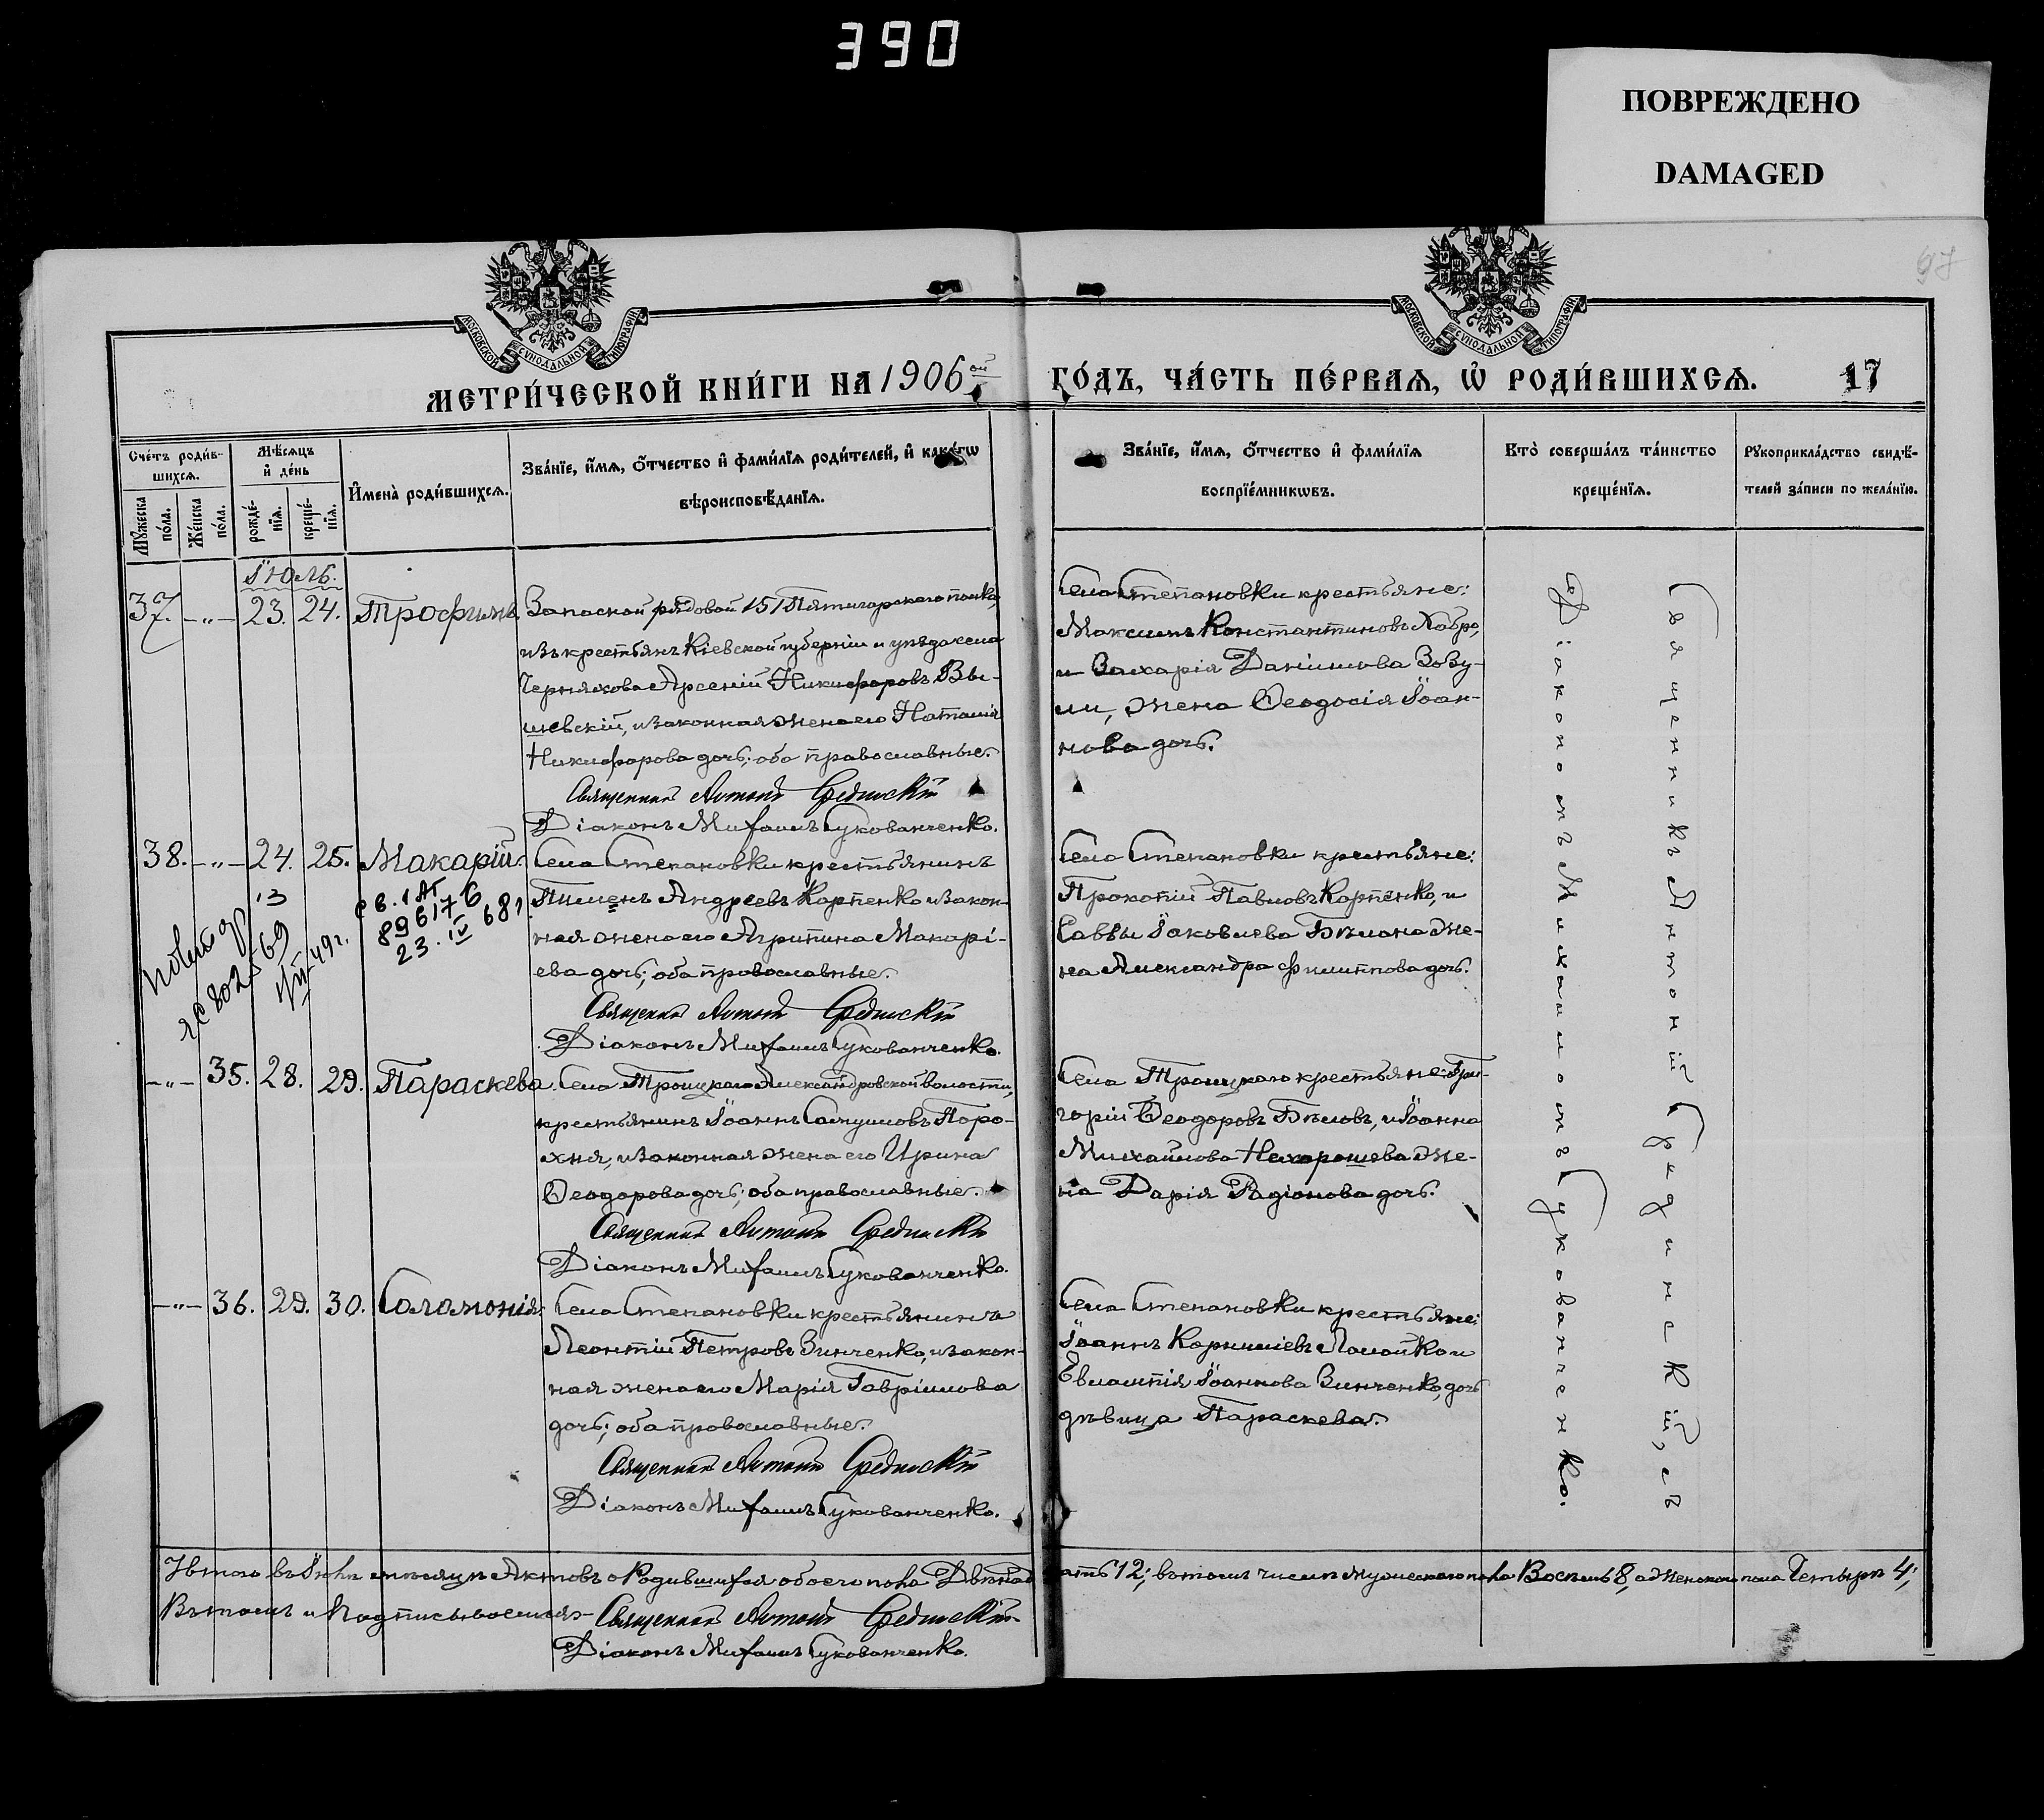 390
ПОВРЕЖДЕНО
DAMAGED
97
МОСКОВСКОЙ СѴНОДАЛЬНОЙ ТИПОГРАФІИ
МОСКОВСКОЙ СѴНОДАЛЬНОЙ ТИПОГРАФІИ
МЕТРИ́ЧЕСКОЙ КНИ́ГИ НА 1906ой ГО́ДЪ, ЧА́СТЬ ПЕ́РВАѦ, Ѡ҆ РОДИ́ВШИХСѦ. 17
Сче́тъ роди́в-
шихсѧ.
Мꙋ́жеска по́ла.
Же́нска по́ла.
Мѣ́сѧцъ и҆ де́нь
рожде́-
нїѧ.
креще́-
нїѧ.
И҆мена̀ роди́вшихсѧ.
Зва́нїе, и҆́мѧ, ѻ҆́тчество и҆ фами́лїѧ роди́телей, и҆ како́гѡ
вѣроисповѣ́данїѧ.
Зва́нїе, и҆́мѧ, ѻ҆́тчество и҆ фами́лїѧ
воспрїе́мникѡвъ.
Кто̀ соверша́лъ та́инство
креще́нїѧ.
Рꙋкоприкла́дство свидѣ́-
телей за́писи по жела́нїю.
Іюль.
37. -"- 23. 24. Трофимъ.
Запасной рядовой 151 Пятигорскаго полка,
изъ крестьянъ Кіевской губерніи и уѣзда села
Черняхова Арсеній Никифоровъ Вы-
шевскій, и законная жена его Наталія
Никифорова дочь; оба православные.
Священникъ Антоній Срединскій
Діаконъ Михаилъ Суковаченко.
Села Степановки крестьяне:
Максимъ Константиновъ Хабро,
и Захарія Даніилова Зозу-
ли, жена Ѳеодосія Іоан-
нова дочь.
38. -"- 24. 25. Макарій.
Села Степановки крестьянинъ
Пименъ Андреевъ Карпенко и закон-
ная жена его Агрипина Макарі-
ева дочь; оба православные.
Священникъ Антоній Срединскій
Діаконъ Михаилъ Суковаченко.
13
49г.
896176
23. IV 68
Села Степановки крестьяне:
Прокопій Павловъ Карпенко, и
Саввы Іаковлева Бѣлана же-
на Александра Филиппова дочь.
-"- 35. 28. 29. Параскева.
Села Троицкаго Александровской волости,
крестьянинъ Іоаннъ Самуиловъ Поро-
хня, и законная жена его Ирина
Ѳеодорова дочь; оба православные.
Священникъ Антоній Срединскій
Діаконъ Михаилъ Суковаченко.
Села Троицкаго крестьяне: Гри-
горій Ѳеодоровъ Бѣловъ, и Іоанна
Михайлова Нехорошева же-
на Дарія Радіонова дочь.
-"- 36. 29. 30. Соломонія.
Села Степановки крестьянинъ
Леонтій Петровъ Зинченко, и закон-
ная жена его Марія Гавріилова
дочь; оба православные.
Священникъ Антоній Срединскій
Діаконъ Михаилъ Суковаченко.
Села Степановки крестьяне:
Іоаннъ Корниліевъ и
Евлампія Іоаннова Зинченко, дочь
дѣвица Параскева.
Священникъ Антоній Срединскій, съ
Діакономъ Михаиломъ Суковаченко.
Итого въ Іюлѣ мѣсяцѣ Актовъ о Родившихся обоего пола Двѣнадцать 12; въ томъ числѣ мужескаго пола Восемь 8, а женскаго пола Четыре 4;
Въ томъ и подписываемся:- Священникъ Антоній Срединскій
Діаконъ Михаилъ Суковаченко.